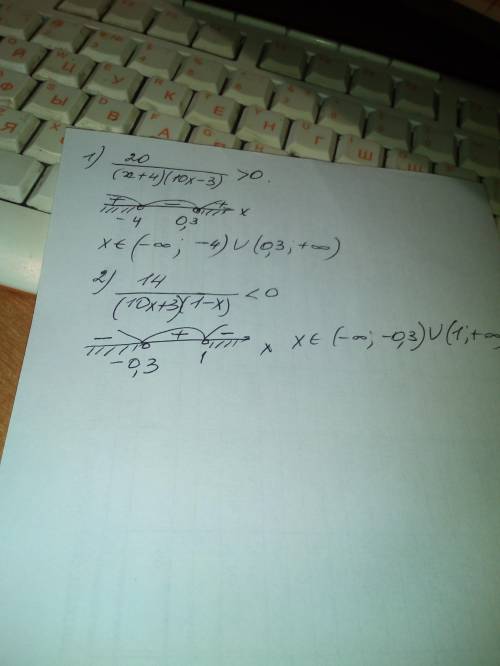 1) 20/((x+4)(10x-3)) >0.
+ - + x
-4 0,3
x∈(-∞; -4)∪(0,3; +∞)
2) 14/((10x+3)(1-x)) <0
- + - x x∈(-∞; -0,3)∪(1; +∞
-0,3 1